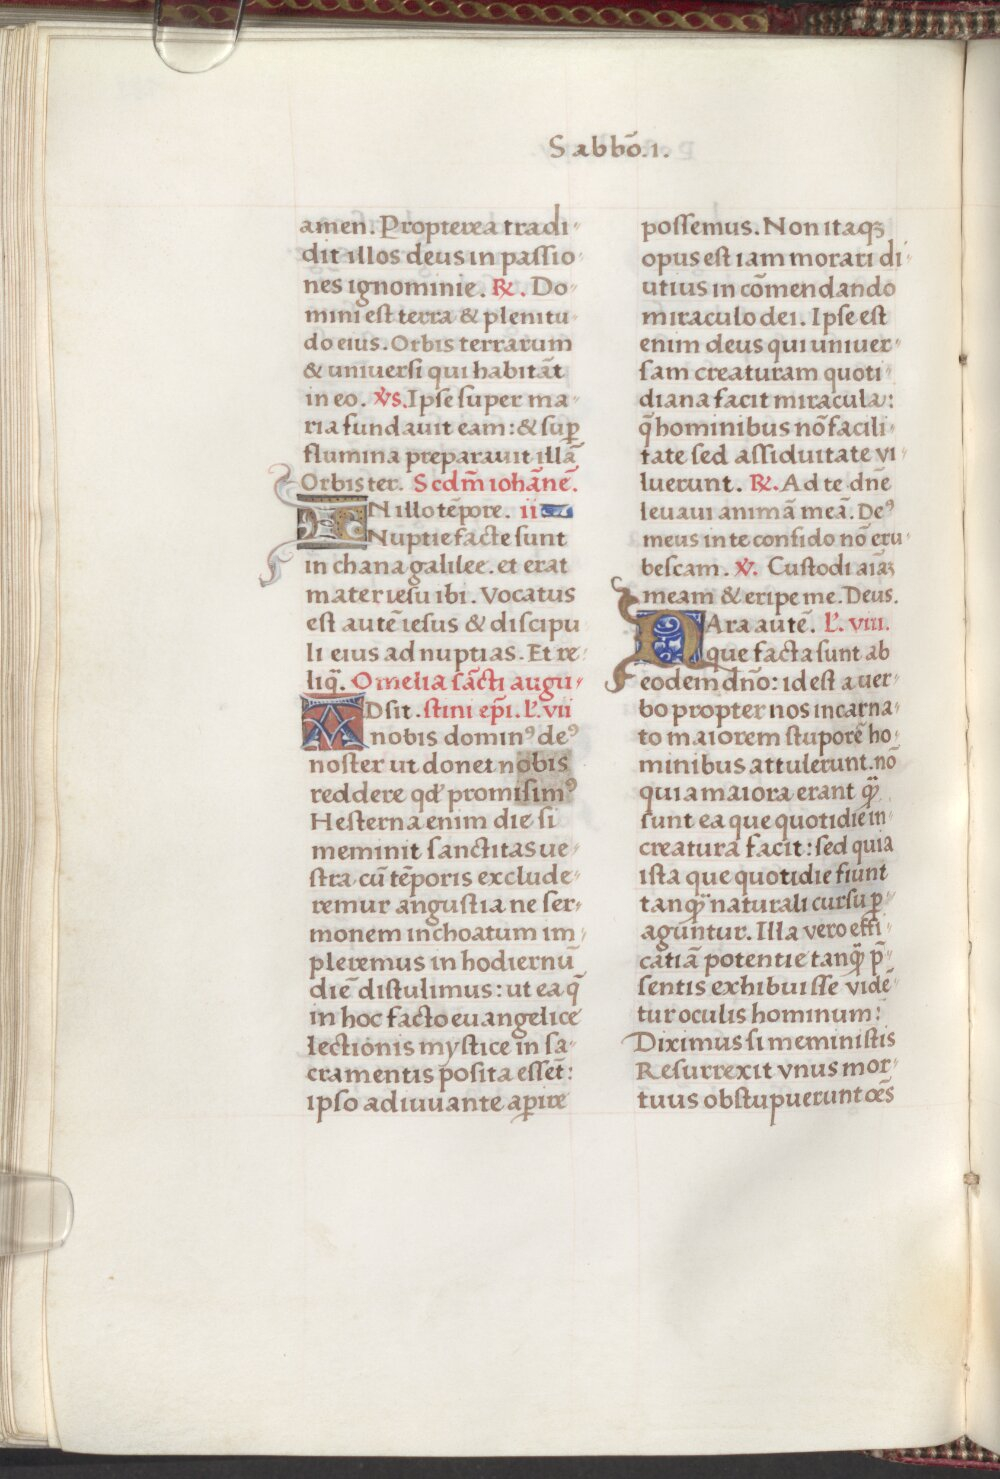 Sabbō.1.
amen. Propterea tradi-
dit illos deus in passio-
nes ignominie. ℞. Do-
mini est terra & plenitu-
do eius. Orbis terrarum
& universi qui habitāt
in eo. ℣s. Ipse super ma-
ria fundavit eam: & suꝑ
flumina preparavit illā
Orbis ter. Scdm̄ iohānē.
IN illo tēpore. ii
Nuptie facte sunt
in chana galilee. et erat
mater iesu ibi. Vocatus
est autē iesus & discipu
li eius ad nuptias. Et re-
liq̄. Omelia sācti augu-
ADsit. stini ep̄i. L'. vii
nobis dominꝰ deꝰ
noster ut donet nobis
reddere qđ promisimꝰ
Hesterna enim die si
meminit sanctitas ve-
stra cū tēporis exclude-
remur angustia ne ser-
monem inchoatum im-
pleremus in hodiernū
diē distulimus: ut ea q̄
in hoc facto euangelice
lectionis mystice in sa-
cramentis posita essēt:
ipso adiuvante aperire
possemus. Non itaqꝫ
opus est iam morari di-
utius in cōmendando
miraculo dei. Ipse est
enim deus qui univer-
sam creaturam quoti-
diana facit miracula:
q̄ hominibus nō facili-
tate sed assiduitate vi-
luerunt. ℞. Ad te dn̄e
levavi animā meā. Deꝰ
meus in te confido nō eru-
bescam. ℣. Custodi aīaꝫ
meam & eripe me. Deus.
NAra autē. L'. viii.
que facta sunt ab
eodem dn̄o: id est a ver-
bo propter nos incarna-
to maiorem stuporē ho-
minibus attulerunt. nō
quia maiora erant q̄̈
sunt ea que quotidie in
creatura facit: sed quia
ista que quotidie fiunt
tanq̄̈ naturali cursu ꝑ-
aguntur. Illa vero effi-
catiā potentie tanq̄̈ p̄-
sentis exhibuisse vidē-
tur oculis hominum:
Diximus si meministis
Resurrexit vnus mor-
tuus obstupuerunt oēs